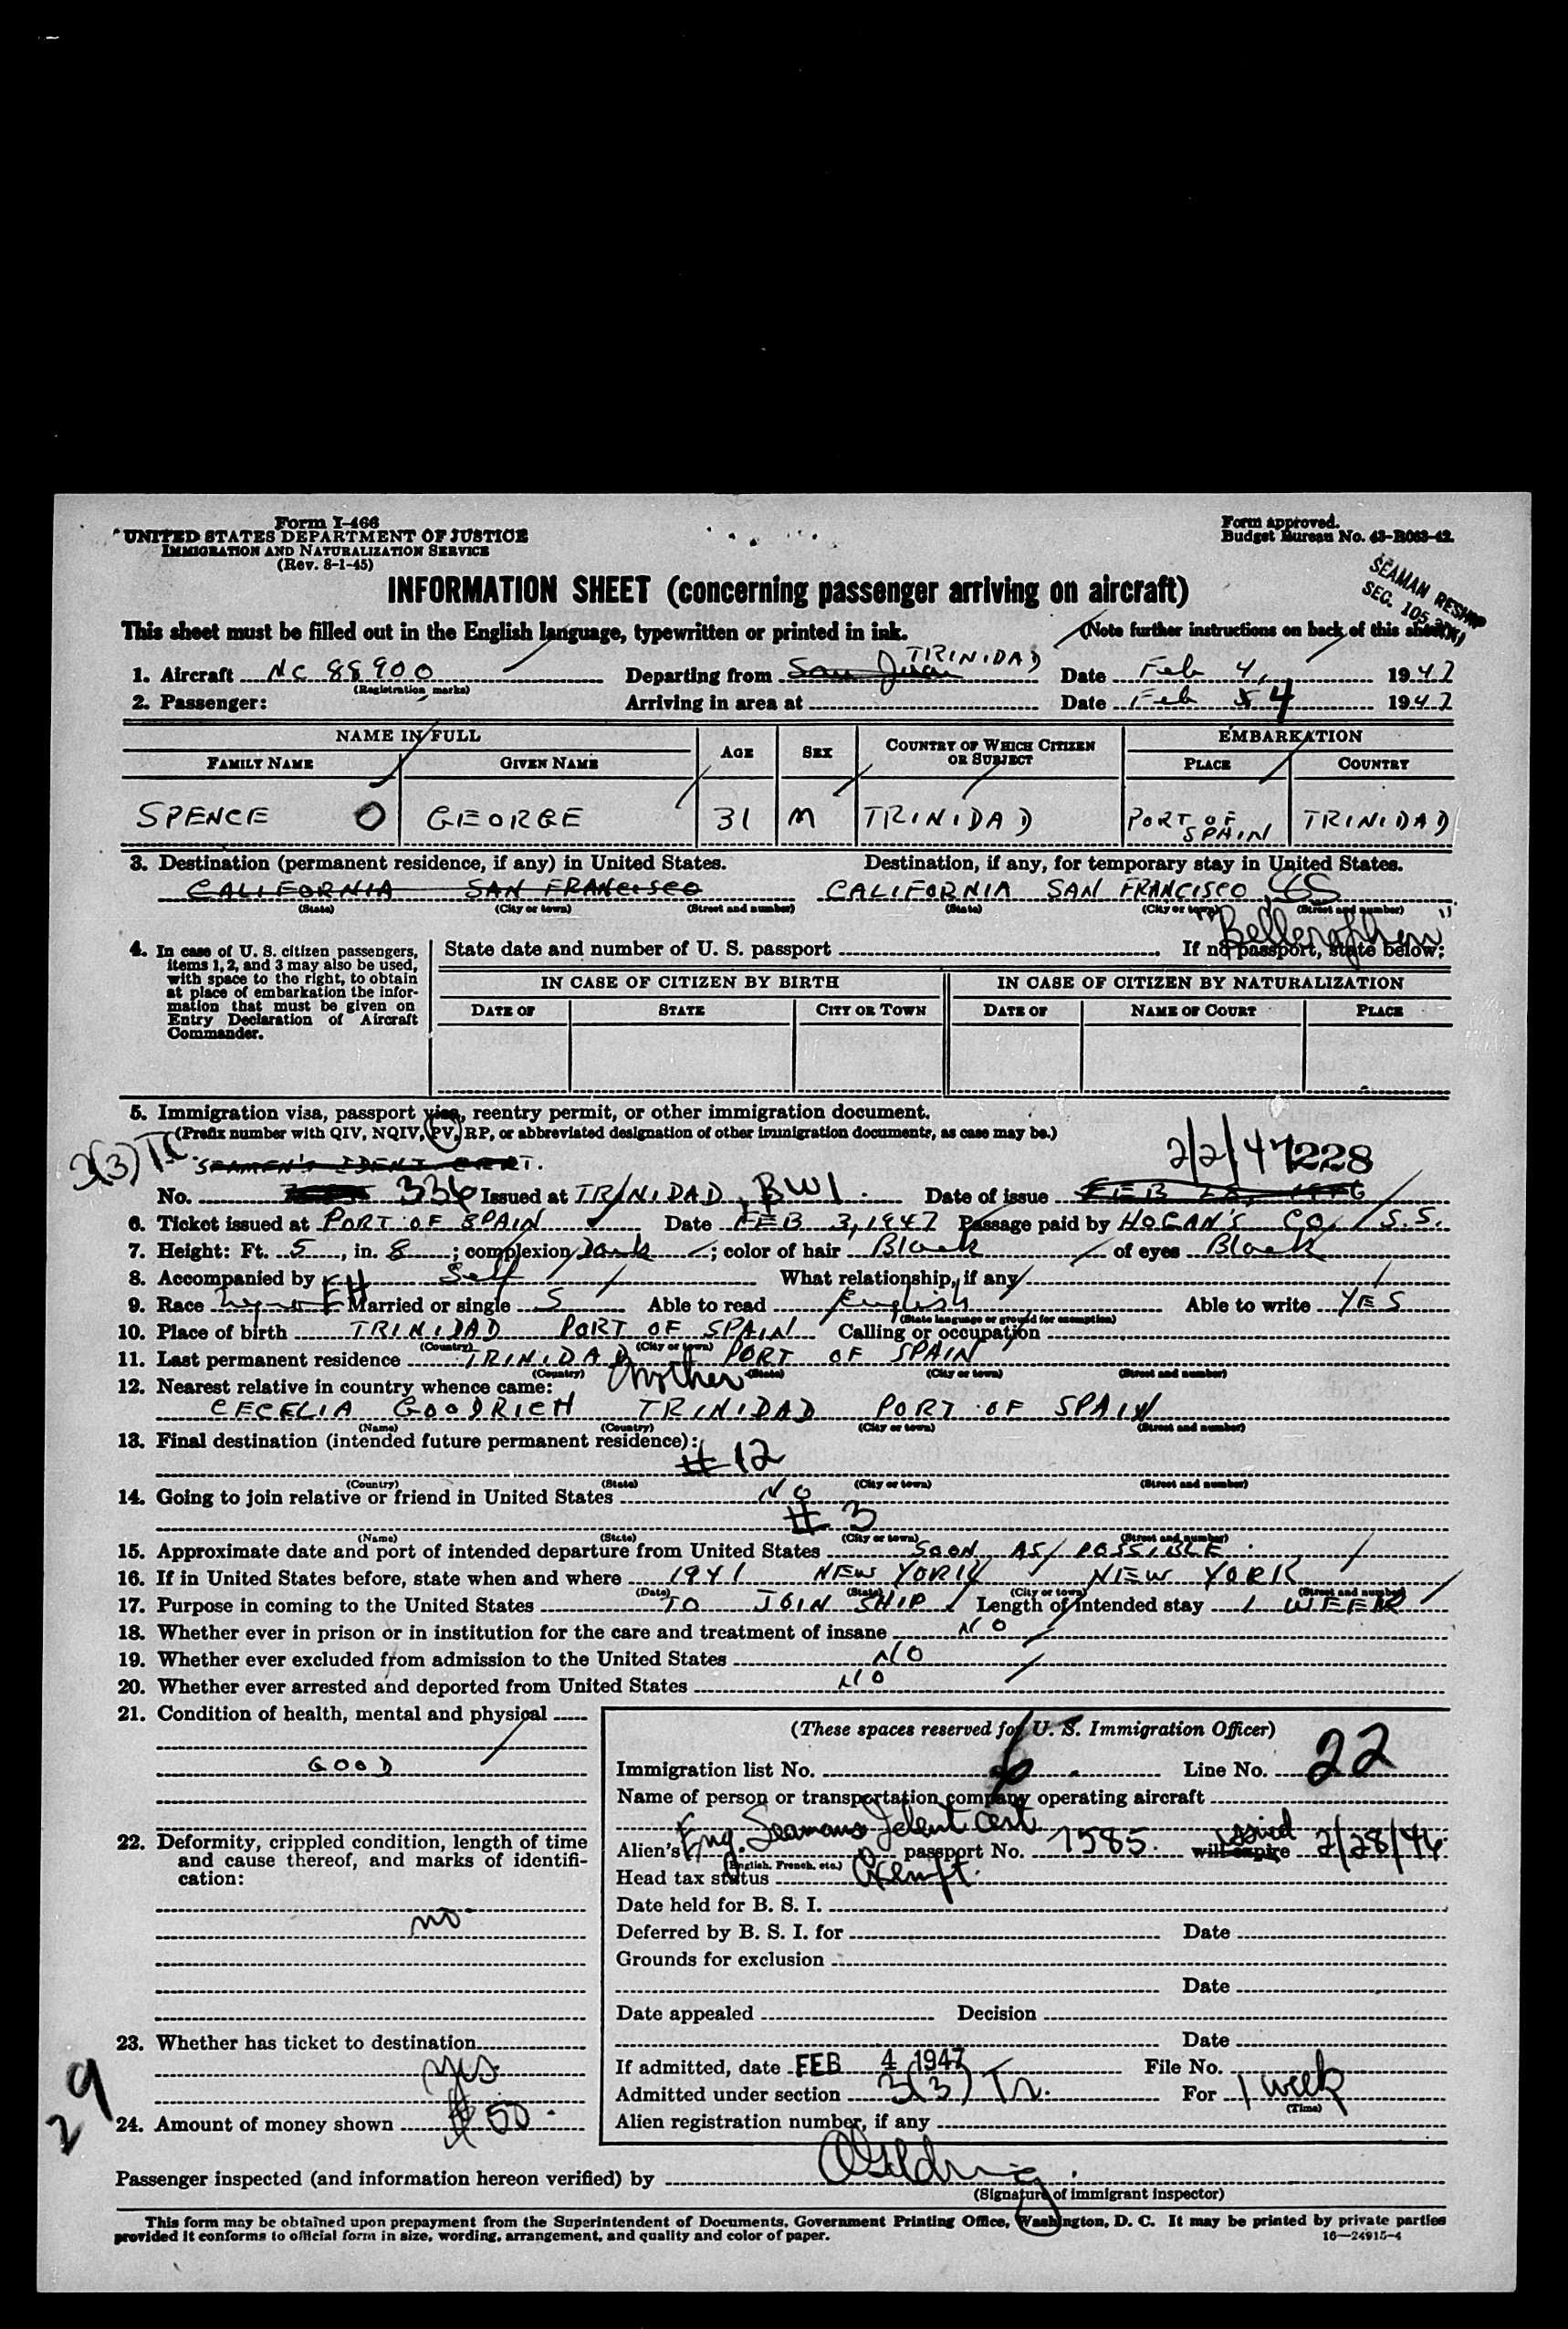 Form I-466
UNITED STATES DEPARTMENT OF JUSTICE
IMMIGRATION AND NATURALIZATION SERVICE
(Rev. 8-1-45)
Form approved.
Budget Bureau No. 43-R063-42.
SEAMAN RESHIP
SEC. 105.
INFORMATION SHEET (concerning passenger arriving on aircraft)
This sheet must be filled out in the English language, typewritten or printed in ink. (Note further instructions on back of this sheet)
1. Aircraft NC 88900 Departing from San Juan TRINIDAD Date Feb 4, 1947
(Registration marks)
2. Passenger: Arriving in area at Date Feb 5 4 1947
NAME IN FULL AGE SEX COUNTRY OF WHICH CITIZEN OR SUBJECT EMBARKATION
FAMILY NAME GIVEN NAME PLACE COUNTRY
SPENCE O GEORGE 31 M TRINIDAD PORT OF SPAIN TRINIDAD
3. Destination (permanent residence, if any) in United States. Destination, if any, for temporary stay in United States.
CALIFORNIA SAN FRANCISCO CALIFORNIA SAN FRANCISCO, SS
(State) (City or town) (Street and number) (State) (City or town) (Street and number)
"Bellerophon"
4. In case of U. S. citizen passengers, items 1, 2, and 3 may also be used, with space to the right, to obtain at place of embarkation the information that must be given on Entry Declaration of Aircraft Commander.
State date and number of U. S. passport If no passport, state below:
IN CASE OF CITIZEN BY BIRTH IN CASE OF CITIZEN BY NATURALIZATION
DATE OF STATE CITY OR TOWN DATE OF NAME OF COURT PLACE
5. Immigration visa, passport visa, reentry permit, or other immigration document.
(Prefix number with QIV, NQIV, PV, RP, or abbreviated designation of other immigration documents, as case may be.)
3(3) Tr. SEAMEN'S IDENT CERT. 2/2/47 1228
No. 336 Issued at TRINIDAD, BWI. Date of issue FEB 28, 1946
6. Ticket issued at PORT OF SPAIN Date FEB 3, 1947 Passage paid by HOGAN'S CO. S.S.
7. Height: Ft. 5, in. 8; complexion Dark; color of hair Black of eyes Black
8. Accompanied by Self What relationship, if any
9. Race Married or single S Able to read English Able to write YES
(State language or ground for exemption)
10. Place of birth TRINIDAD PORT OF SPAIN Calling or occupation
(Country) (City or town)
11. Last permanent residence TRINIDAD PORT OF SPAIN
(Country) (State) (City or town) (Street and number)
12. Nearest relative in country whence came: Mother
CECELIA GOODRICH TRINIDAD PORT OF SPAIN
(Name) (Country) (City or town) (Street and number)
13. Final destination (intended future permanent residence):
# 12
(Country) (State) (City or town) (Street and number)
14. Going to join relative or friend in United States NO
# 3
(Name) (State) (City or town) (Street and number)
15. Approximate date and port of intended departure from United States SOON AS POSSIBLE.
16. If in United States before, state when and where 1941 NEW YORK NEW YORK
(Date) (State) (City or town) (Street and number)
17. Purpose in coming to the United States TO JOIN SHIP Length of intended stay 1 WEEK
18. Whether ever in prison or in institution for the care and treatment of insane NO
19. Whether ever excluded from admission to the United States NO
20. Whether ever arrested and deported from United States NO
21. Condition of health, mental and physical
GOOD
22. Deformity, crippled condition, length of time and cause thereof, and marks of identification:
no
23. Whether has ticket to destination
yes
24. Amount of money shown $50.
29
(These spaces reserved for U. S. Immigration Officer)
Immigration list No. 6 Line No. 22
Name of person or transportation company operating aircraft
Alien's Eng. Seamans Ident Cert passport No. 7585. will expire issued 2/28/46.
(English, French, etc.)
Head tax status Exempt.
Date held for B. S. I.
Deferred by B. S. I. for Date
Grounds for exclusion
Date
Date appealed Decision
Date
If admitted, date FEB 4 1947 File No.
Admitted under section 3(3) Tr. For 1 week
(Time)
Alien registration number, if any
Passenger inspected (and information hereon verified) by
(Signature of immigrant inspector)
This form may be obtained upon prepayment from the Superintendent of Documents, Government Printing Office, Washington, D. C. It may be printed by private parties
provided it conforms to official form in size, wording, arrangement, and quality and color of paper. 16—24915-4